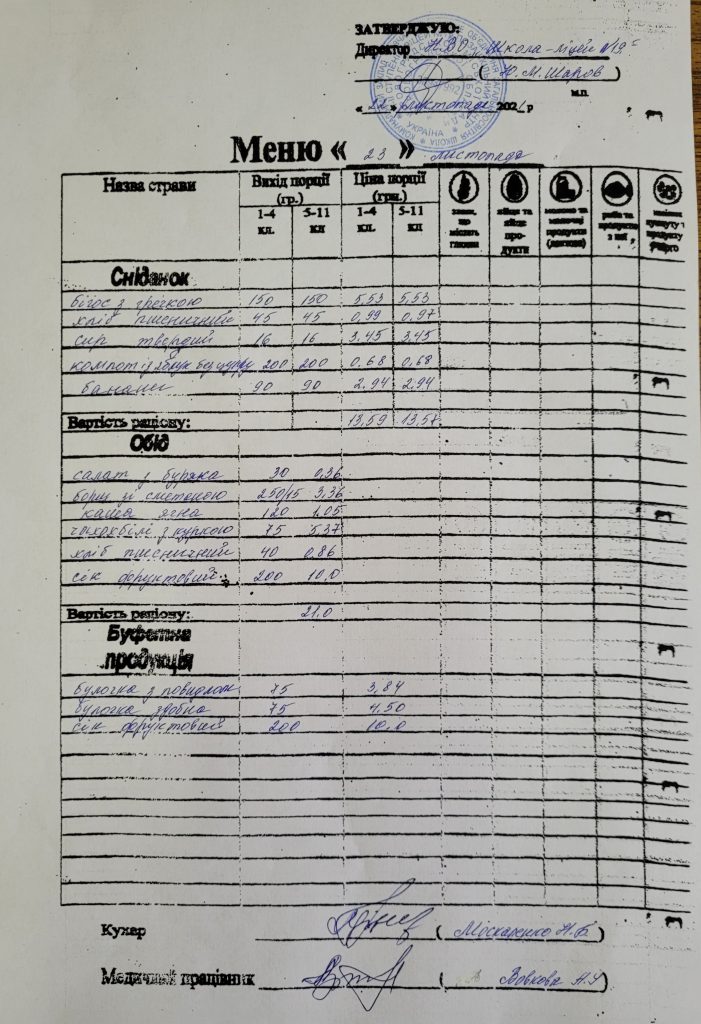 ЗАТВЕРДЖУЮ:
Директор НВО „Школа-ліцей №19"
( Ю.М. Шаров )
м.п.
« 22 » листопада 2021 р
Меню « 23 » листопада
Назва страви Вихід порції (гр.) Ціна порції (грн.)
1-4 кл. 5-11 кл 1-4 кл. 5-11 кл.
злаки, що містять глютен
яйця та яйце продукти
молоко та молочні продукти (лактоза)
риба та продукти з неї
Сніданок
бігос з гречкою 150 150 5,53 5,53
хліб пшеничний 45 45 0,99 0,97
сир твердий 16 16 3,45 3,45
компот із яблук без цукру 200 200 0,68 0,68
банани 90 90 2,94 2,94
Вартість раціону: 13,59 13,57
Обід
салат з буряка 30 0,36
борщ зі сметаною 250/15 3,36
каша ячна 120 1,05
чахохбілі з куркою 75 5,37
хліб пшеничний 40 0,86
сік фруктовий 200 10,0
Вартість раціону: 21,0
Буфетна
продукція
булочка з повидлом 75 3,84
булочка здобна 75 4,50
сік фруктовий 200 10,0
Кухар ( Москаленко Н.Б )
Медичний працівник ( Вовкова А.У )